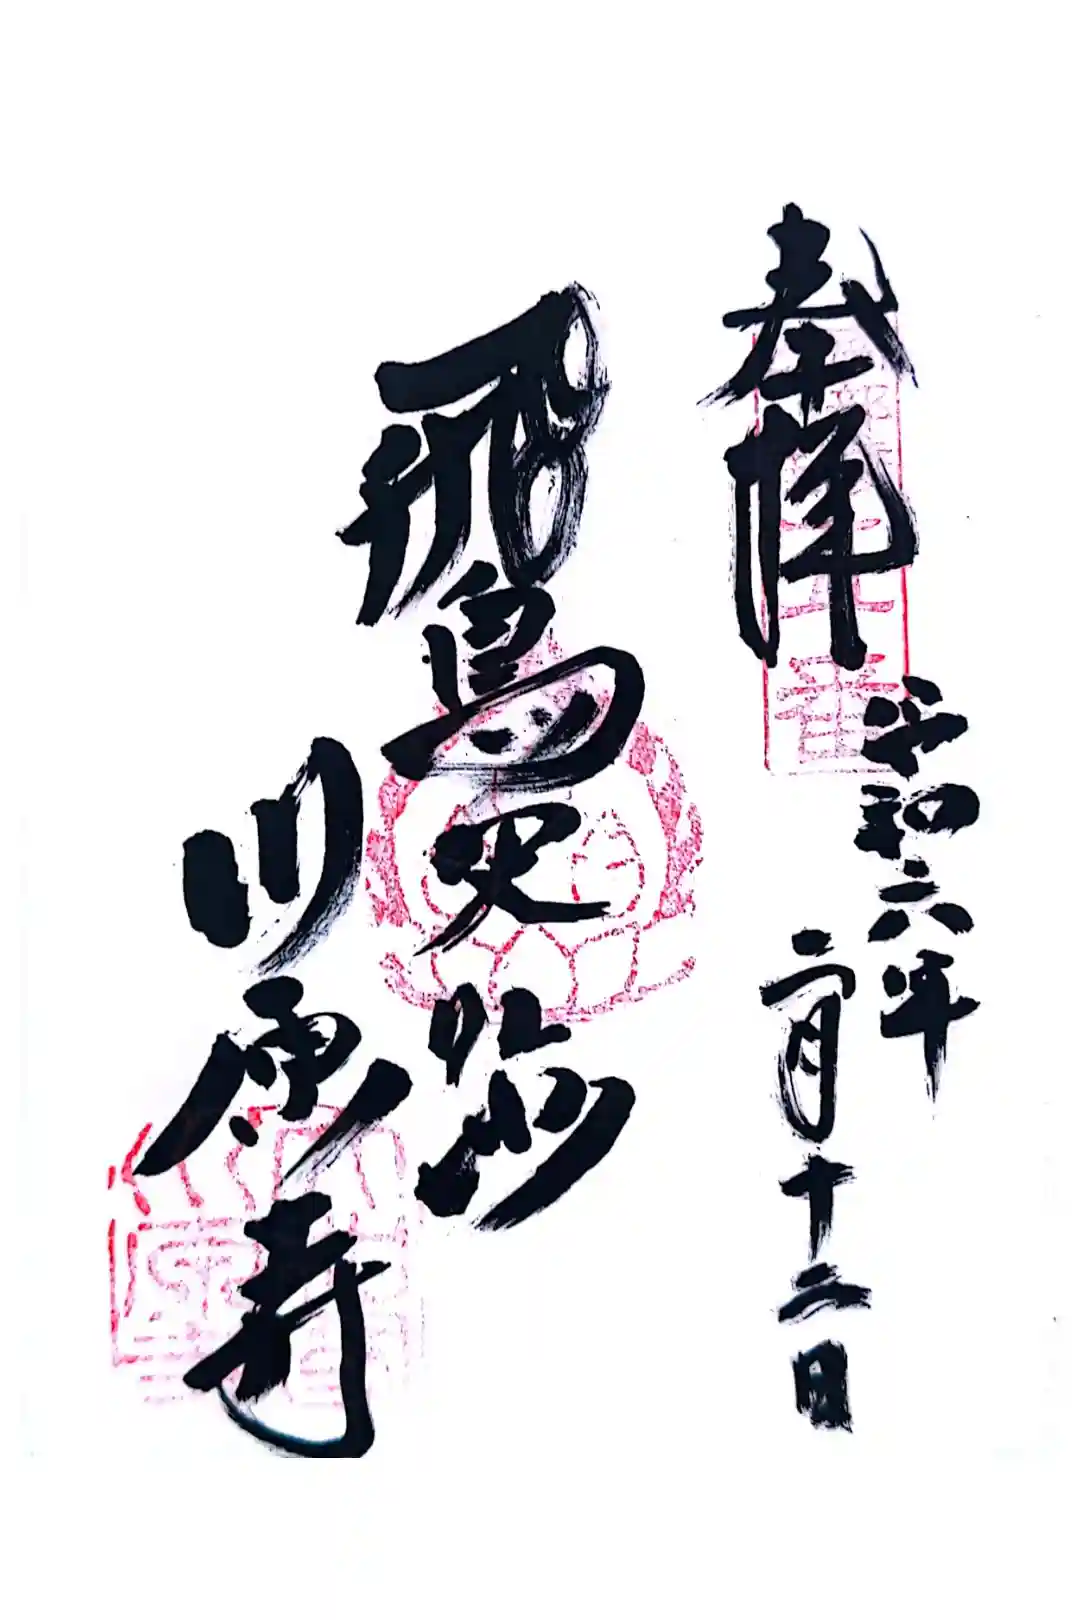 奉拝
令和六年
二月十二日
飛鳥史跡
川原寺